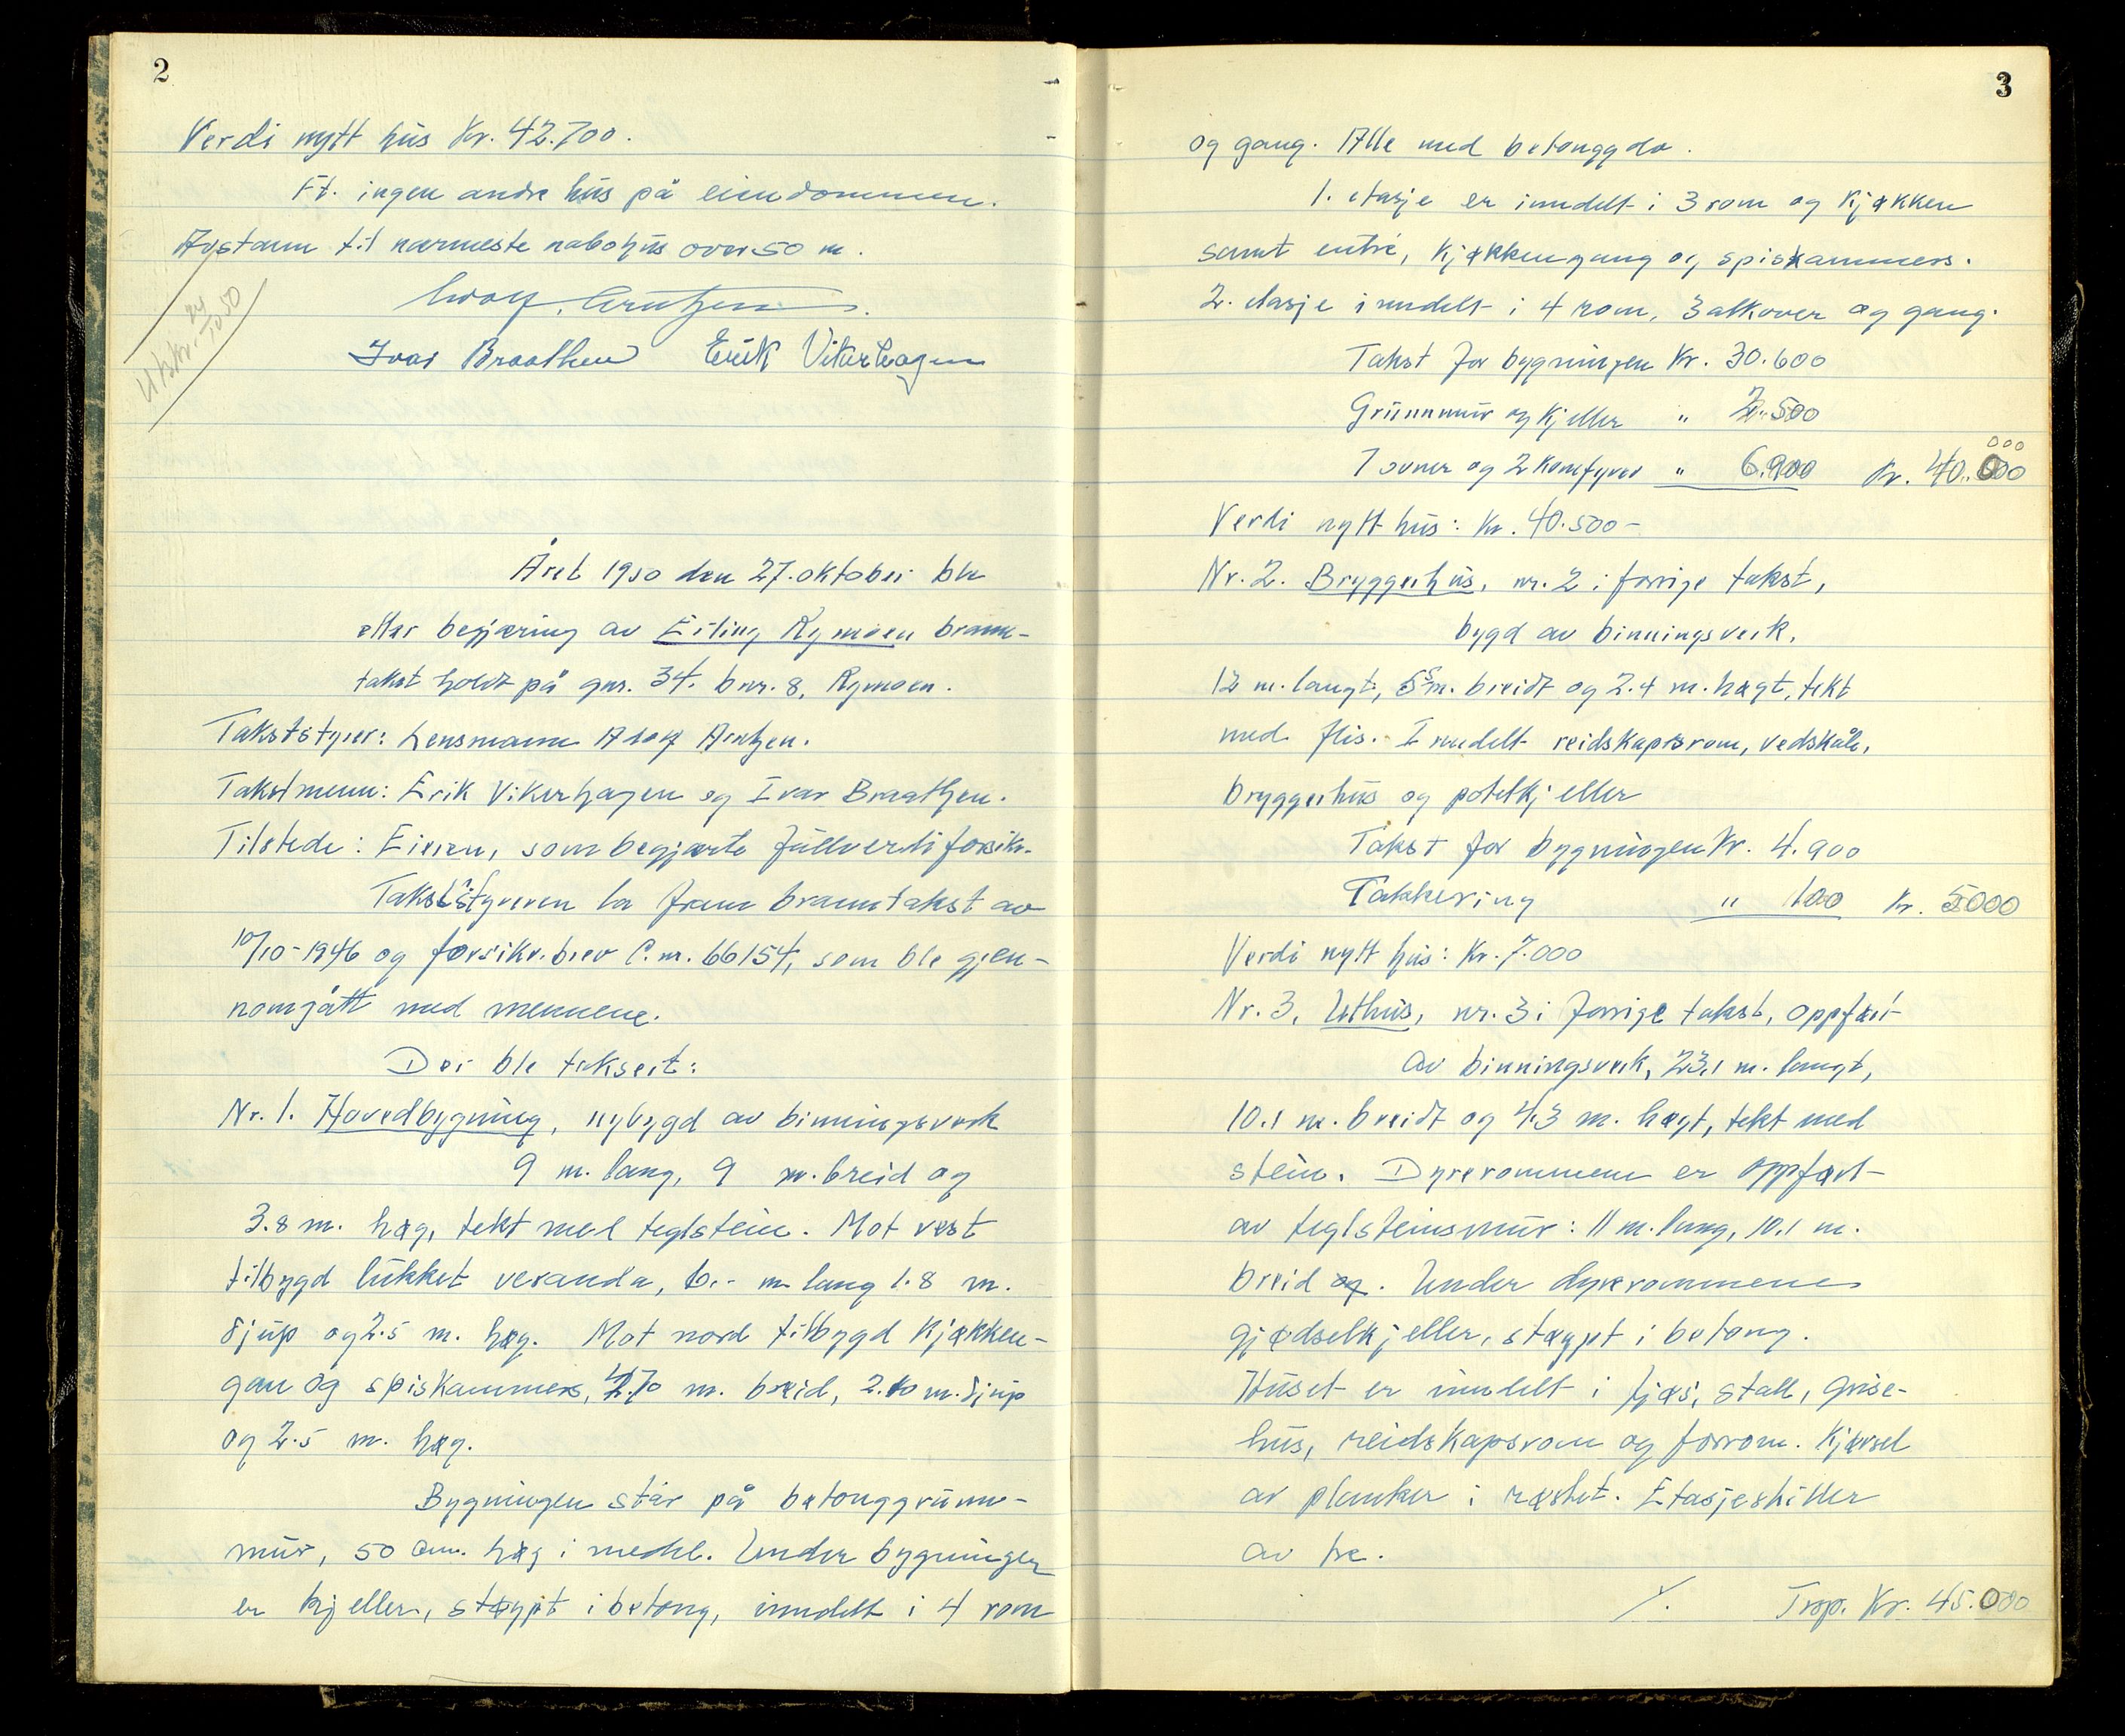 2
Verdi nytt hus kr. 42.700.
F.t. ingen andre hus på eiendommen.
Avstann til nærmeste nabohus over 50 m.
Utskr. 24/10 50
Adolf Arntzen.
Ivar Braathen Erik Vikerhagen
Året 1950 den 27. oktober ble
etter begjæring av Erling Rymoen brann-
takst holdt på gnr. 34. bnr. 8, Rymoen.
Takststyrer: Lensmann Adolf Arntzen.
Takstmenn: Erik Vikerhagen og Ivar Braathen.
Tilstede: Eieren, som begjærte fullverdiforsikr.
Takststyreren la fram branntakst av
10/10-1946 og forsikr.brev C.nr. 66154, som ble gjen-
nomgått med mennene.
Der ble taksert:
Nr. 1. Hovedbygning, nybygd av binningsverk
9 m. lang, 9 m. breid og
3.8 m. høg, tekt med teglstein. Mot vest
tilbygd lukket veranda, 6.- m lang 1.8 m.
djup og 2.5 m. høg. Mot nord tilbygd kjøkken-
gan og spiskammers, 4.70 m. breid, 2.10 m. djup
og 2.5 m. høg.
Bygningen står på betonggrunn-
mur, 50 cm. høg i medel. Under bygningen
er kjeller, støypt i betong, inndelt i 4 rom
3
og gang. Alle med betonggolv.
1. etasje er inndelt i 3 rom og kjøkken
samt entré, kjøkkengang og spiskammers.
2. etasje inndelt i 4 rom, 3 alkover og gang.
Takst for bygningen kr. 30.600
Grunnmur og kjeller " 2.500
7 ovner og 2 komfyrer " 6.900 kr. 40.000
000
Verdi nytt hus: kr. 40.500-
Nr. 2. Bryggerhus, nr. 2 i forrige takst,
bygd av binningsverk,
12 m. langt, 5 m. breidt og 2.4 m. høgt, tekt
med flis. Inndelt reidskapsrom, vedskåle,
bryggerhus og potetkjeller
Takst for bygningen kr. 4.900
Takkering " 100 kr. 5000
Verdi nytt hus: kr. 7.000
Nr. 3, Uthus, nr. 3 i forrige takst, oppført
av binningsverk, 23,1 m. langt,
10.1 m. breidt og 4.3 m. høgt, tekt med
stein. Dyrerommene er oppført
av teglsteinsmur: 11 m. lang, 10.1 m.
breid og. Under dyrerommene
gjødselkjeller, støypt i betong.
Huset er inndelt i fjøs, stall, grise-
hus, reidskapsrom og forrom. Kjørsel
av planker i røstet. Etasjeskiller
av tre.
./. Trsp. kr. 45.000